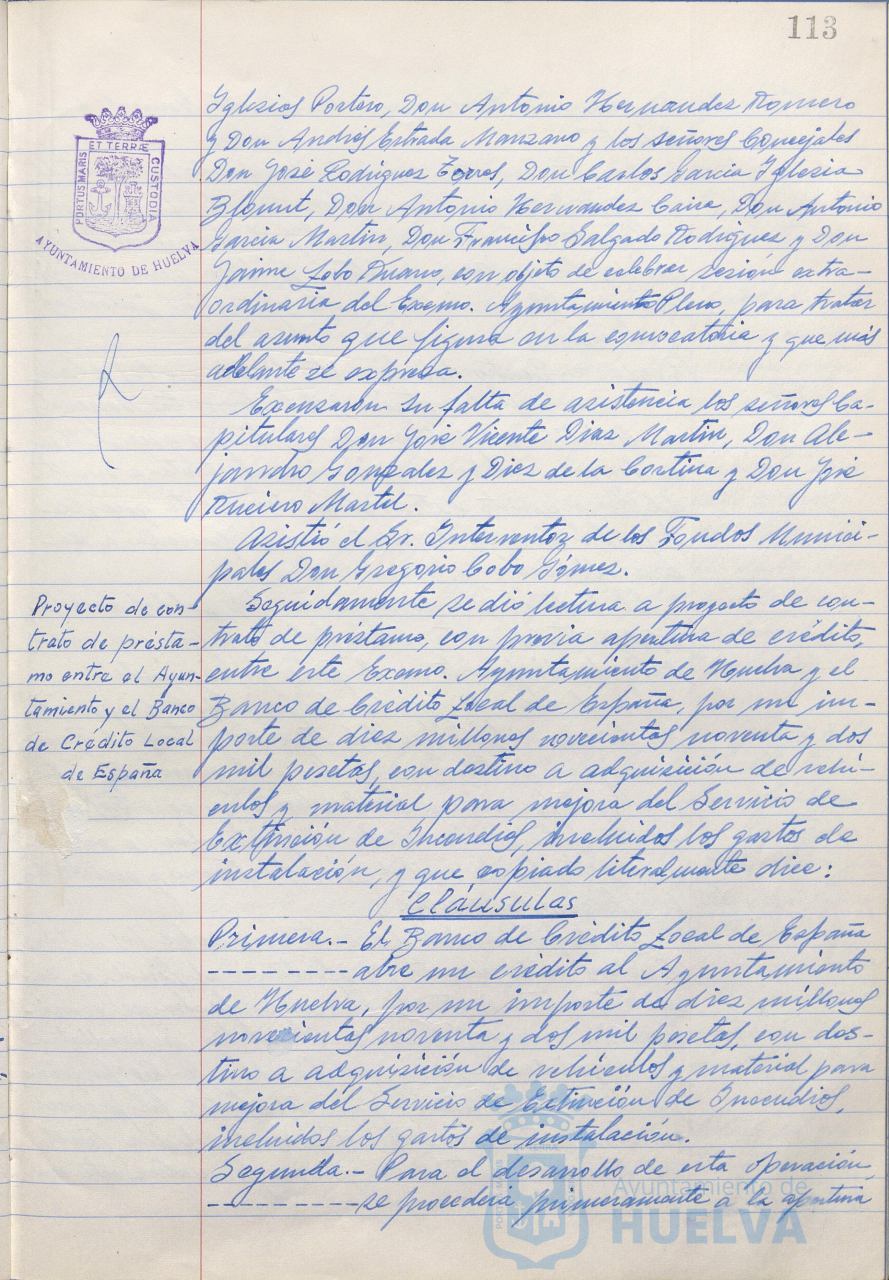 113
PORTUS MARIS
ET TERRÆ
CUSTODIA
AYUNTAMIENTO DE HUELVA
Iglesias Portero, Don Antonio Hernandez Romero
y Don Andrés Estrada Manzano y los señores Concejales
Don José Rodriguez Torres, Don Carlos Garcia Iglesia
Blount, Don Antonio Hernandez Caira, Don Antonio
Garcia Martin, Don Francisco Salgado Rodriguez y Don
Jaime Lobo, con objeto de celebrar sesión extra-
ordinaria del Excmo. Ayuntamiento Pleno, para tratar
del asunto que figura en la convocatoria y que más
adelante se expresa.
Excusaron su falta de asistencia los señores Ca-
pitulares Don José Vicente Diaz Martin, Don Ale-
jandro Gonzalez y Diez de la Cortina y Don José
Martel.
Asistió el Sr. Interventor de los Fondos Munici-
pales Don Gregorio Cobo Gómez.
Proyecto de con-
trato de présta-
mo entre el Ayun-
tamiento y el Banco
de Crédito Local
de España
Seguidamente se dió lectura a proyecto de con-
trato de préstamo, con previa apertura de crédito,
entre este Excmo. Ayuntamiento de Huelva y el
Banco de Crédito Local de España, por un im-
porte de diez millones novecientas noventa y dos
mil pesetas, con destino a adquisición de vehi-
culos y material para mejora del Servicio de
Extinción de Incendios, incluidos los gastos de
instalación, y que copiado literalmente dice:
Cláusulas
Primera.- El Banco de Crédito Local de España
--------- abre un crédito al Ayuntamiento
de Huelva, por un importe de diez millones
novecientas noventa y dos mil pesetas, con des-
tino a adquisición de vehículos y material para
mejora del Servicio de Extinción de Incendios,
incluidos los gastos de instalación.
Segunda.- Para el desarrollo de esta operación,
---------- se procederá primeramente a la apertura
Ayuntamiento de
HUELVA